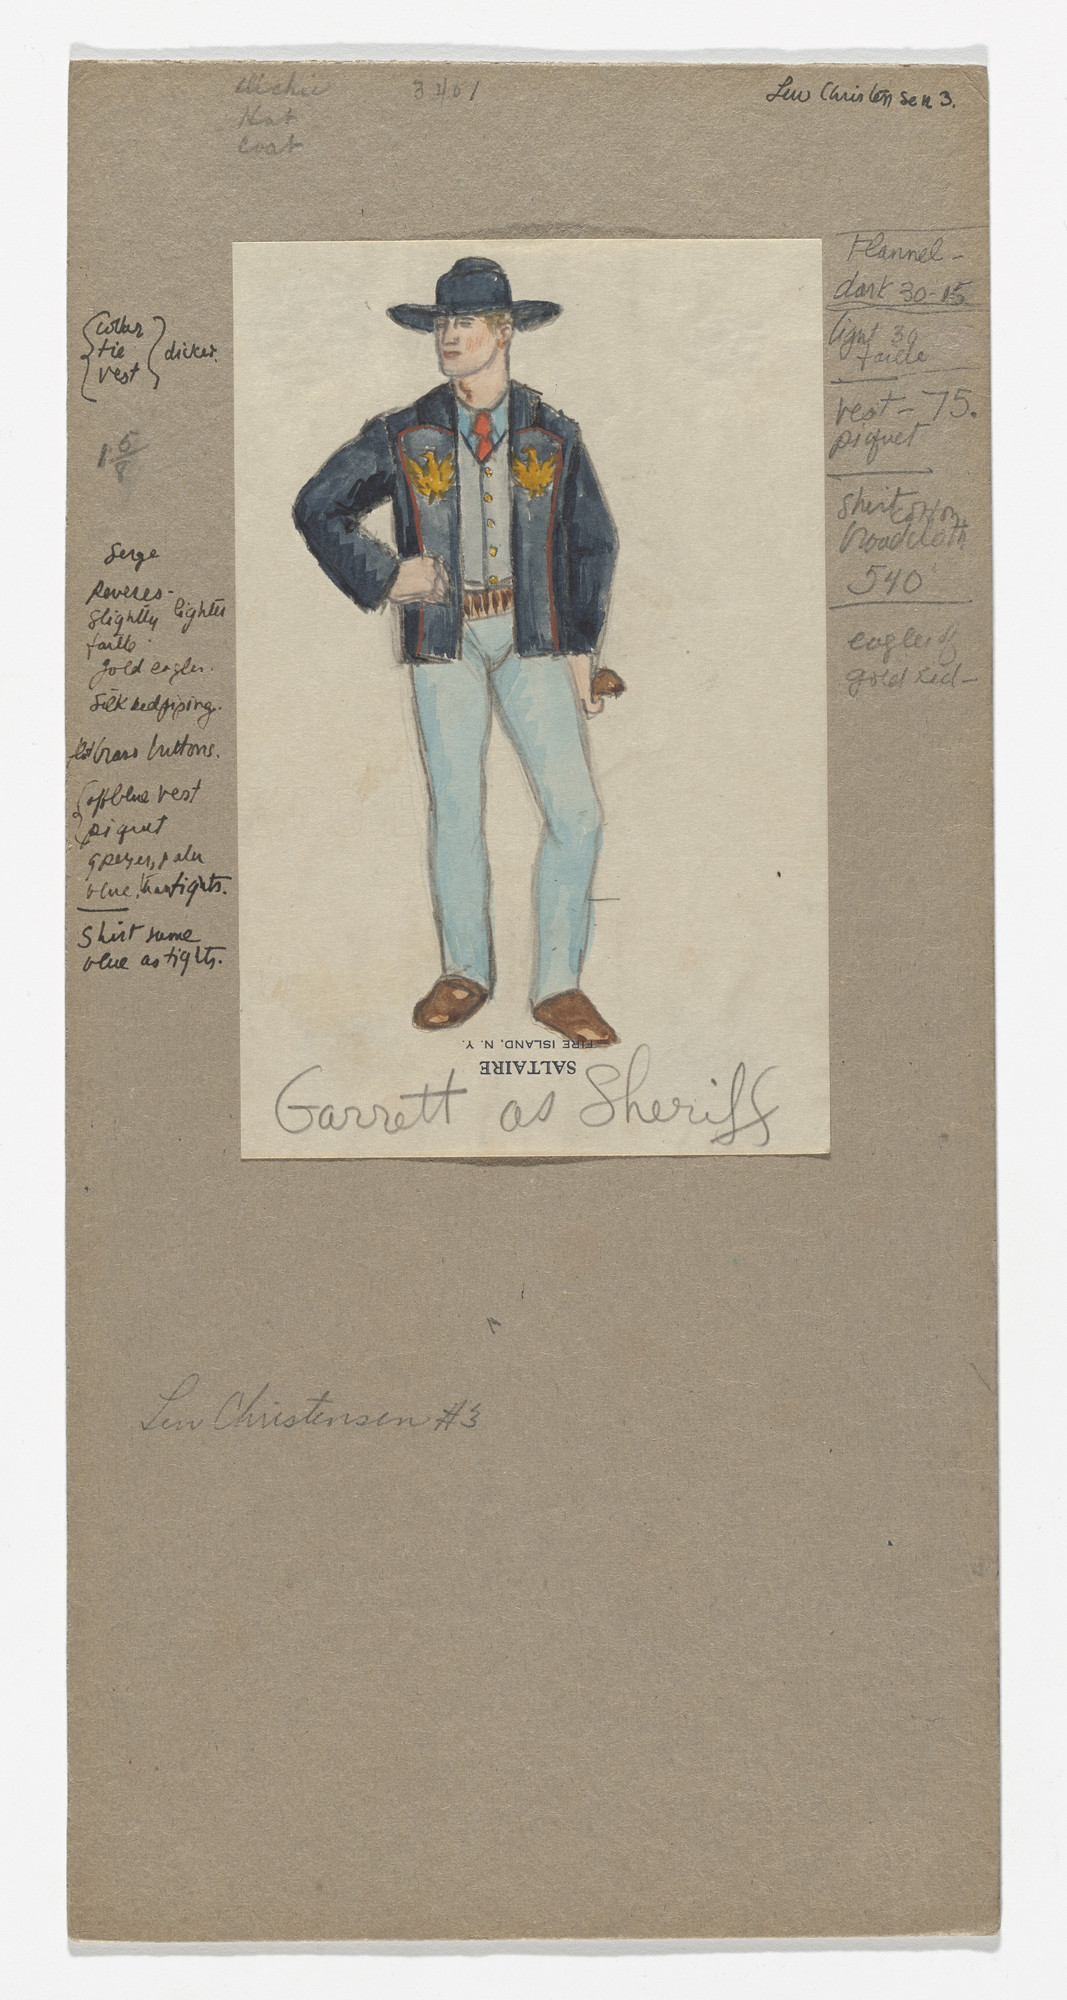 Hat
coat
Lew Christensen 3.
collar
tie
vest
dickey.
Serge
Reveres-
slightly lighter
faille
gold eagles.
silk red piping.
brass buttons.
off blue vest
piquet
greyer, paler
blue, than tights.
Shirt same
blue as tights.
Flannel-
dark 30-15
light 30
faille
vest - 75.
piquet
shirt cotton
broadcloth
540
eagles of
gold kid-
FIRE ISLAND, N. Y.
SALTAIRE
Garrett as Sheriff
Lew Christensen #3